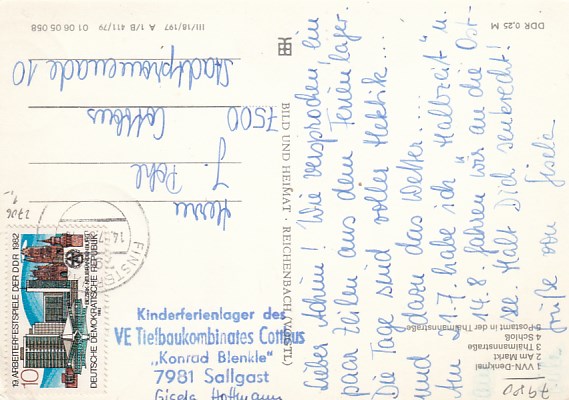 Lieber Achim! Wie versprochen, ein
paar Zeilen aus dem Ferienlager.
Die Tage sind voller Hektik...
und dazu das Wetter....
Am 21.7. habe ich "Halbzeit" u.
14.8. fahren wir an die Ost-
see. Halt Dich senkrecht!
Grüße von Gisela
Kinderferienlager des
VE Tiefbaukombinates Cottbus
„Konrad Blenkle"
7981 Sallgast
Gisela Hoffmann
1 VVN-Denkmal
2 Am Markt
3 Thälmannstraße
4 Schloß
5 Postamt in der Thälmannstraße
7980
BILD UND HEIMAT · REICHENBACH (VOGTL)
DDR 0,25 M
III/18/197 A 1/B 411/79 01 06 05 058
Herrn
J. Pohle
7500
Cottbus
Stadtpromenade 10
19. ARBEITERFESTSPIELE DER DDR 1982
DEUTSCHE DEMOKRATISCHE REPUBLIK
10
FINST
14.-7